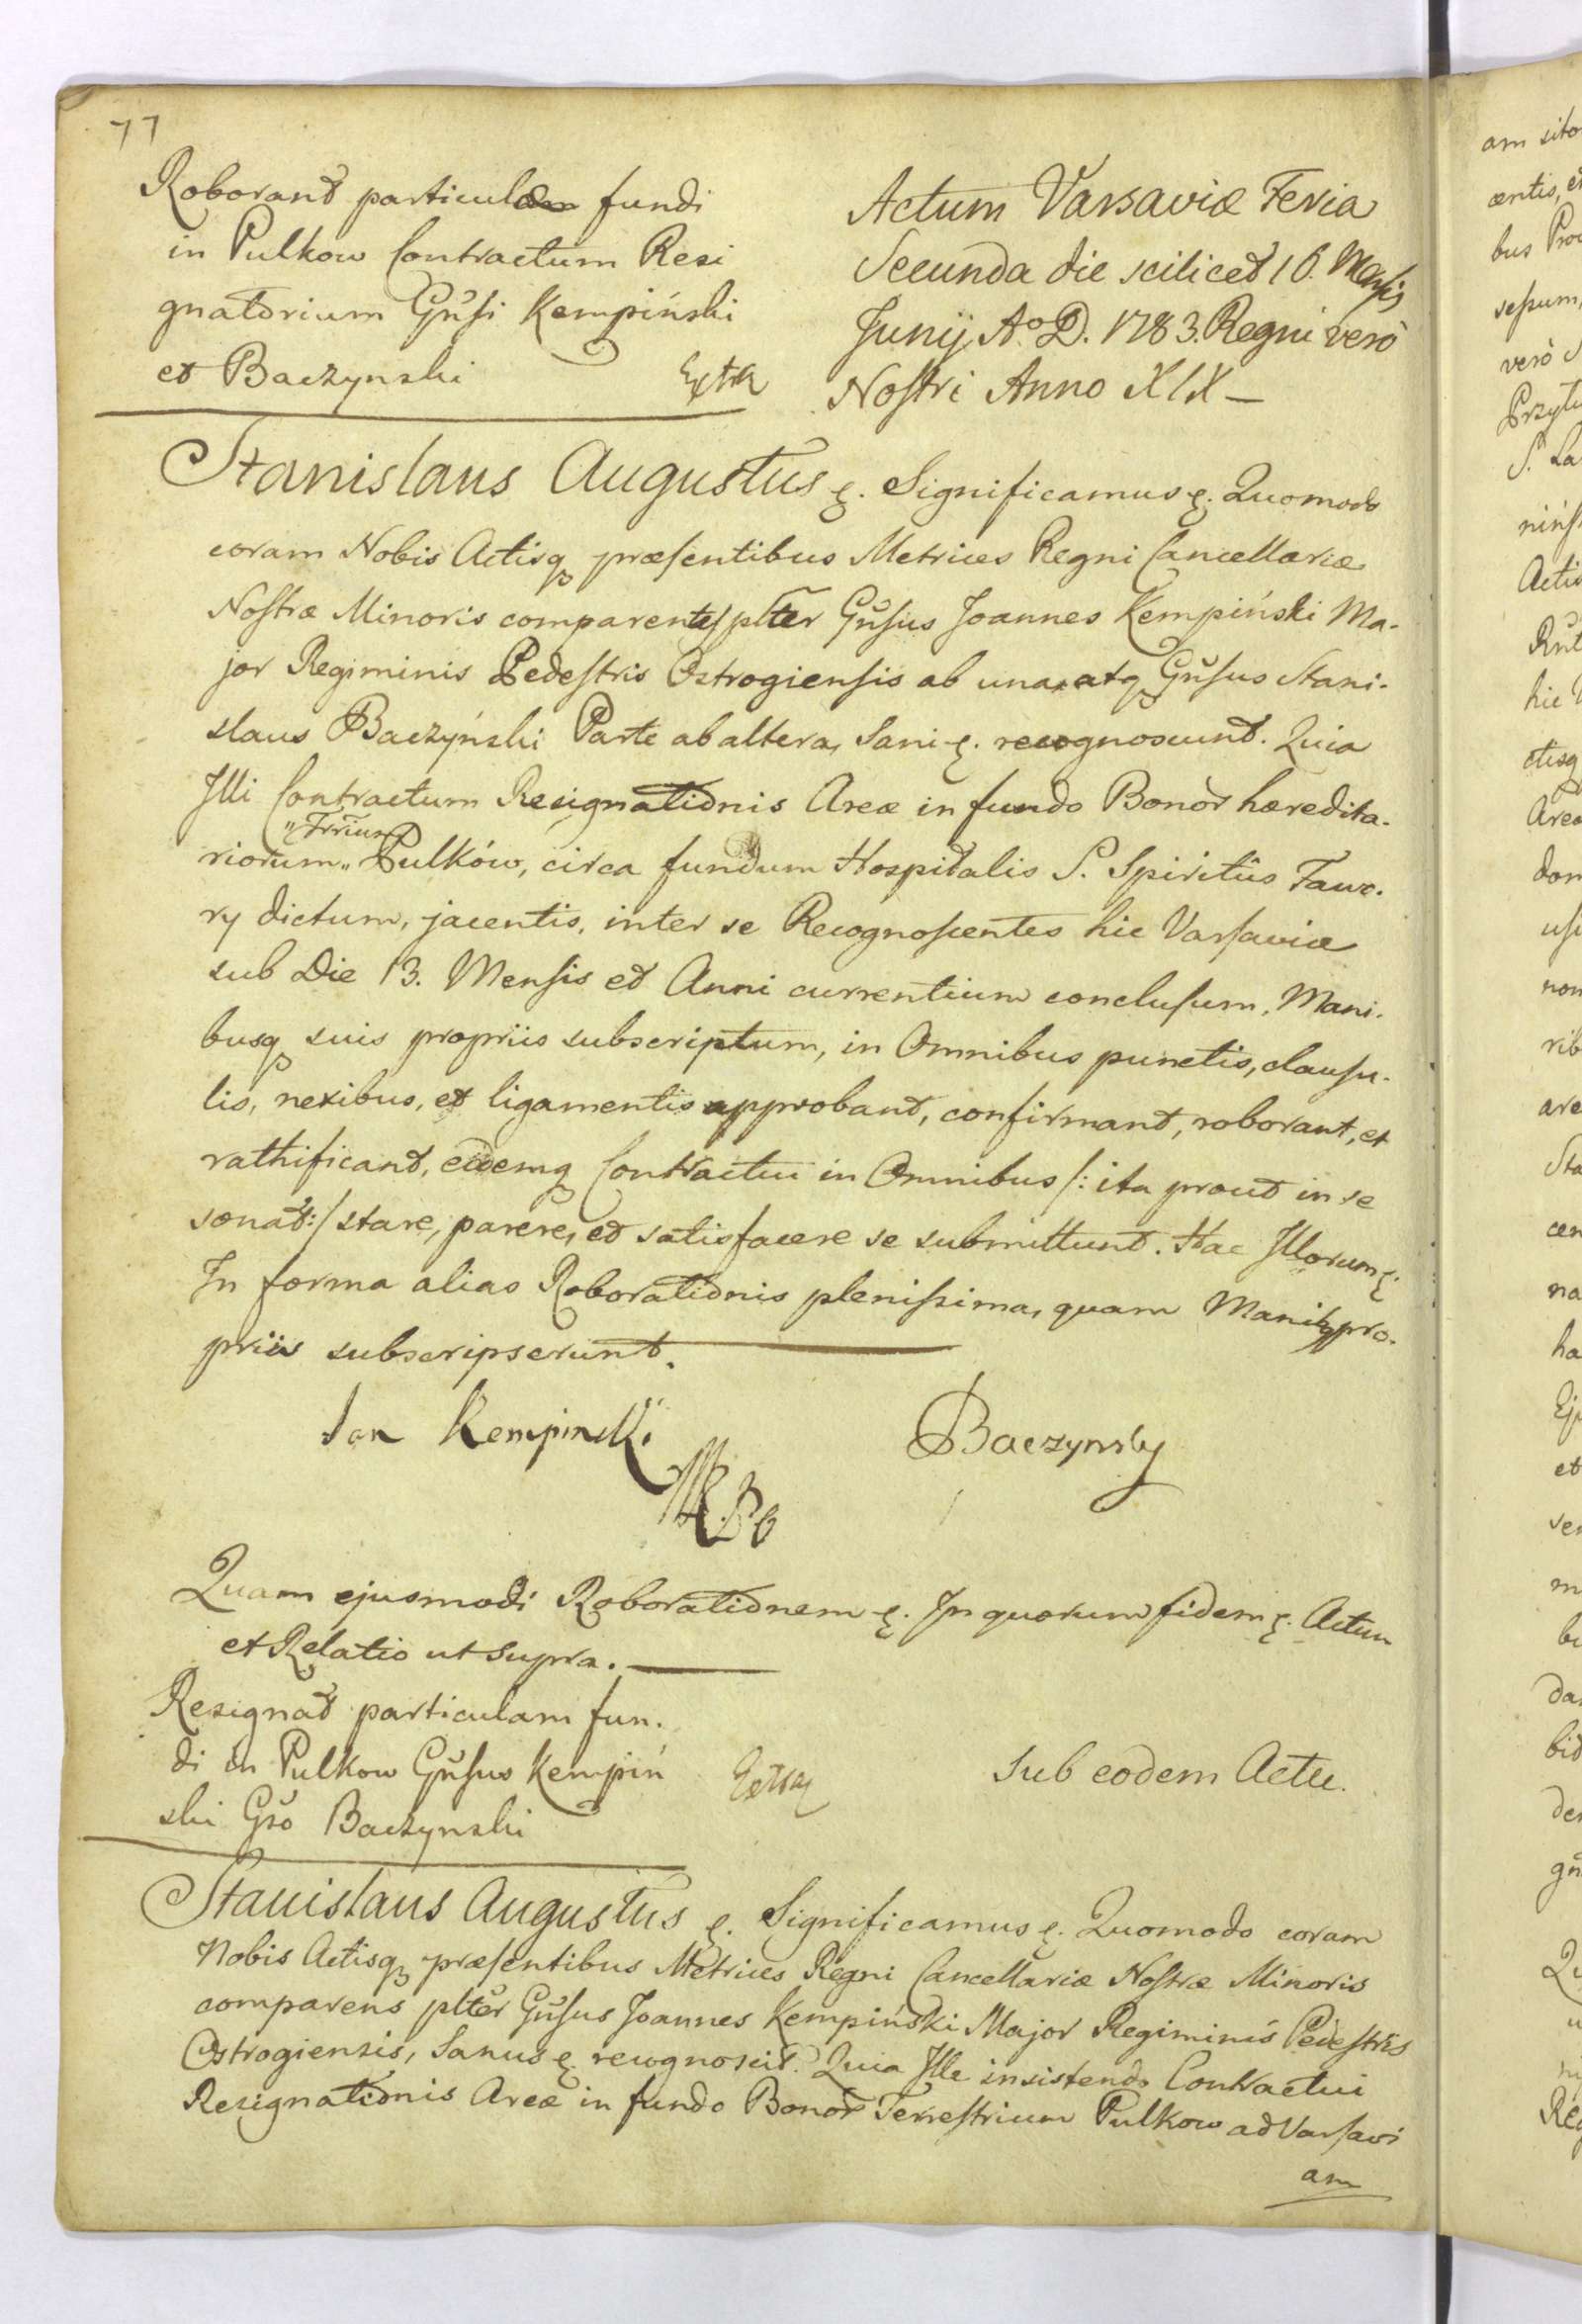 77
Roborant particulam fundi
in Pulkow Contractum Resi
gnatorium Gnsi Kempiński
et Baczynski Extra
Actum Varsaviæ Feria
Secunda die scilicet 16. Mensis
Junij A.o D. 1783. Regni verò
Nostri Anno XIX –
Stanislaus Augustus ę. Significamus ę. Quomodo
coram Nobis Actisq præsentibus Metrices Regni Cancellariæ
Nostræ Minoris comparentes plter Gnsus Joannes Kempiński Ma-
jor Regiminis Pedestris Ostrogiensis ab una, atq Gnsus Stani-
slaus Baczyński Parte ab altera, Sani ę. recognoscunt. Quia
Illi Contractum Resignationis Areæ in fundo Bonor hæredita-
riorum „Trrium„ Pulków, circa fundum Hospitalis S. Spiritûs Fawo-
ry dictum, jacentis, inter se Recognoscentes hic Varsaviæ
sub Die 13. Mensis et Anni currentium conclusum, Mani-
busq suis propriis subscriptum, in Omnibus punctis, clausu-
lis, nexibus, et ligamentis approbant, confirmant, roborant, et
rathificant, eidemq Contractui in Omnibus /: ita prout in se
sonat :/ stare, parere, et satisfacere se submittunt. Hac Illorum ę.
In forma alias Roborationis plenissima, quam Manibq pro-
priis subscripserunt.
Jan Kempinski
Baczynsky
Quam ejusmodi Roborationem ę. In quorum fidem ę. Actum
et Relatio ut supra.
Resignat particulam fun-
di in Pulkow Gnsus Kempiń
ski Gso Baczynski Extra
Sub eodem Actu.
Stanislaus Augustus ę. Significamus ę. Quomodo coram
Nobis Actisq præsentibus Metrices Regni Cancellariæ Nostræ Minoris
comparens plter Gnsus Joannes Kempiński Major Regiminis Pedestris
Ostrogiensis, Sanus ę. recognoscit. Quia Ille insistendo Contractui
Resignationis Areæ in fundo Bonor Terrestrium Pulkow ad Varsavi
am